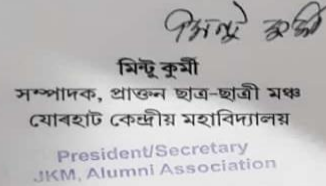 মিন্টু কুৰ্মী
মিন্টু কুৰ্মী
সম্পাদক, প্ৰাক্তন ছাত্ৰ-ছাত্ৰী মঞ্চ
যোৰহাট কেন্দ্ৰীয় মহাবিদ্যালয়
President/Secretary
JKM, Alumni Association